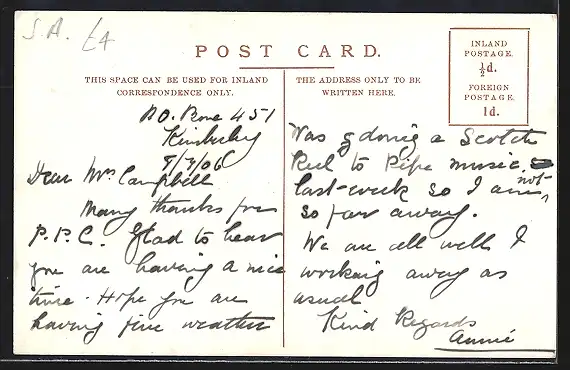 S.A. £4
POST CARD.
THIS SPACE CAN BE USED FOR INLAND
CORRESPONDENCE ONLY.
THE ADDRESS ONLY TO BE
WRITTEN HERE.
INLAND
POSTAGE.
½d.
FOREIGN
POSTAGE.
1d.
P.O. Box 451
Kimberley
9/7/06
Dear Mrs Campbell
Many thanks for
P.P.C. Glad to hear
you are having a nice
time. Hope you are
having fine weather
Was doing a Scotch
Reel to Pipe music
last-week so I am not
so far away.
We are all well &
working away as
usual
Kind Regards
Annie